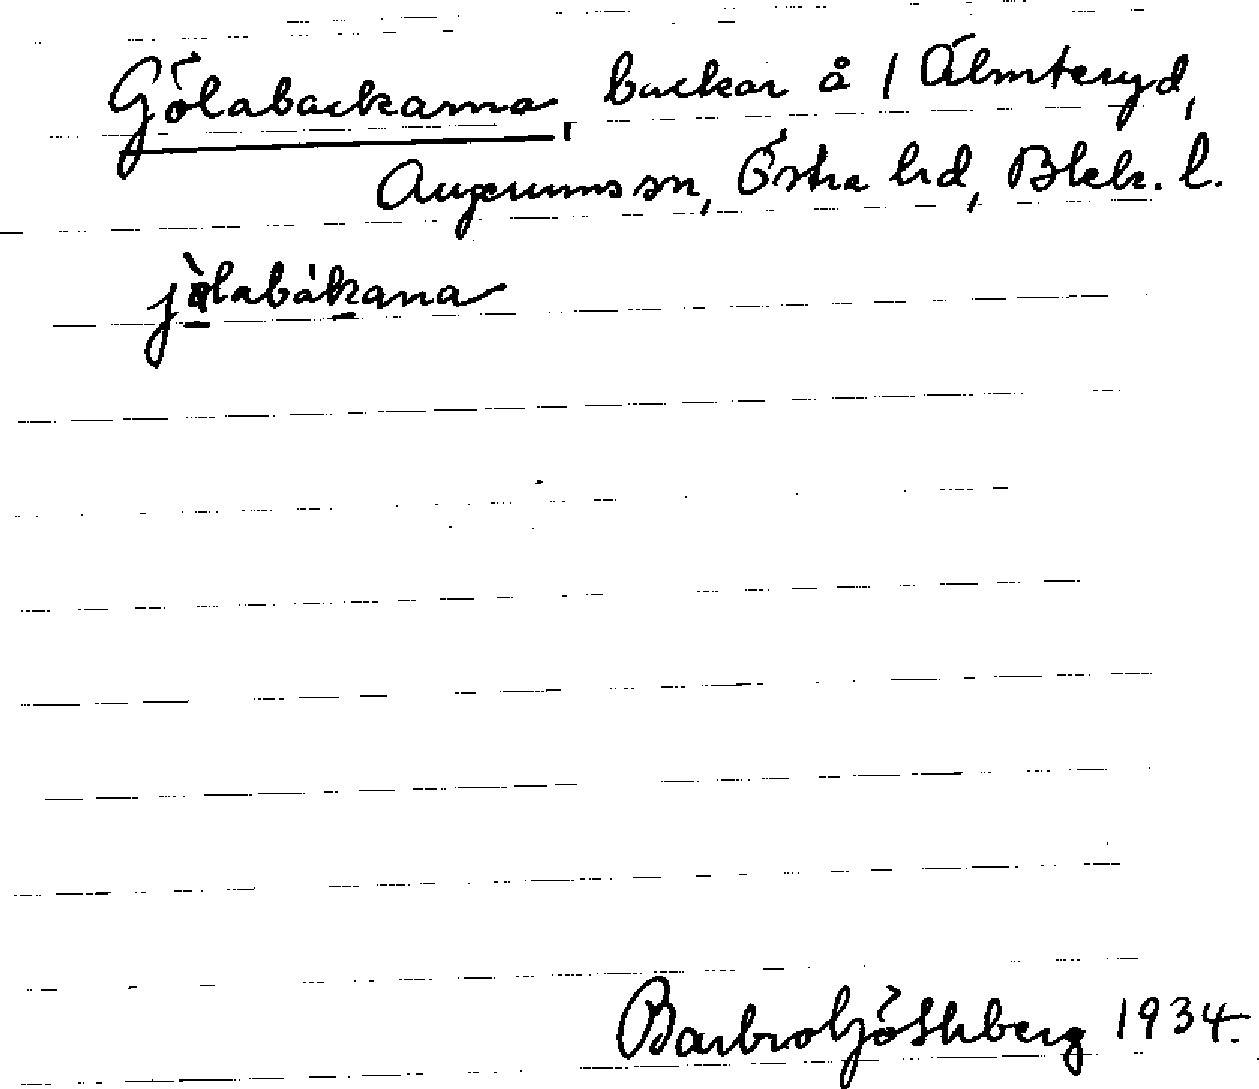 Gölabackarna, backar å 1 Älmteryd,
Augerums sn, Östra hd, Blek. l.
jòlabákana
Barbro Göthberg 1934.